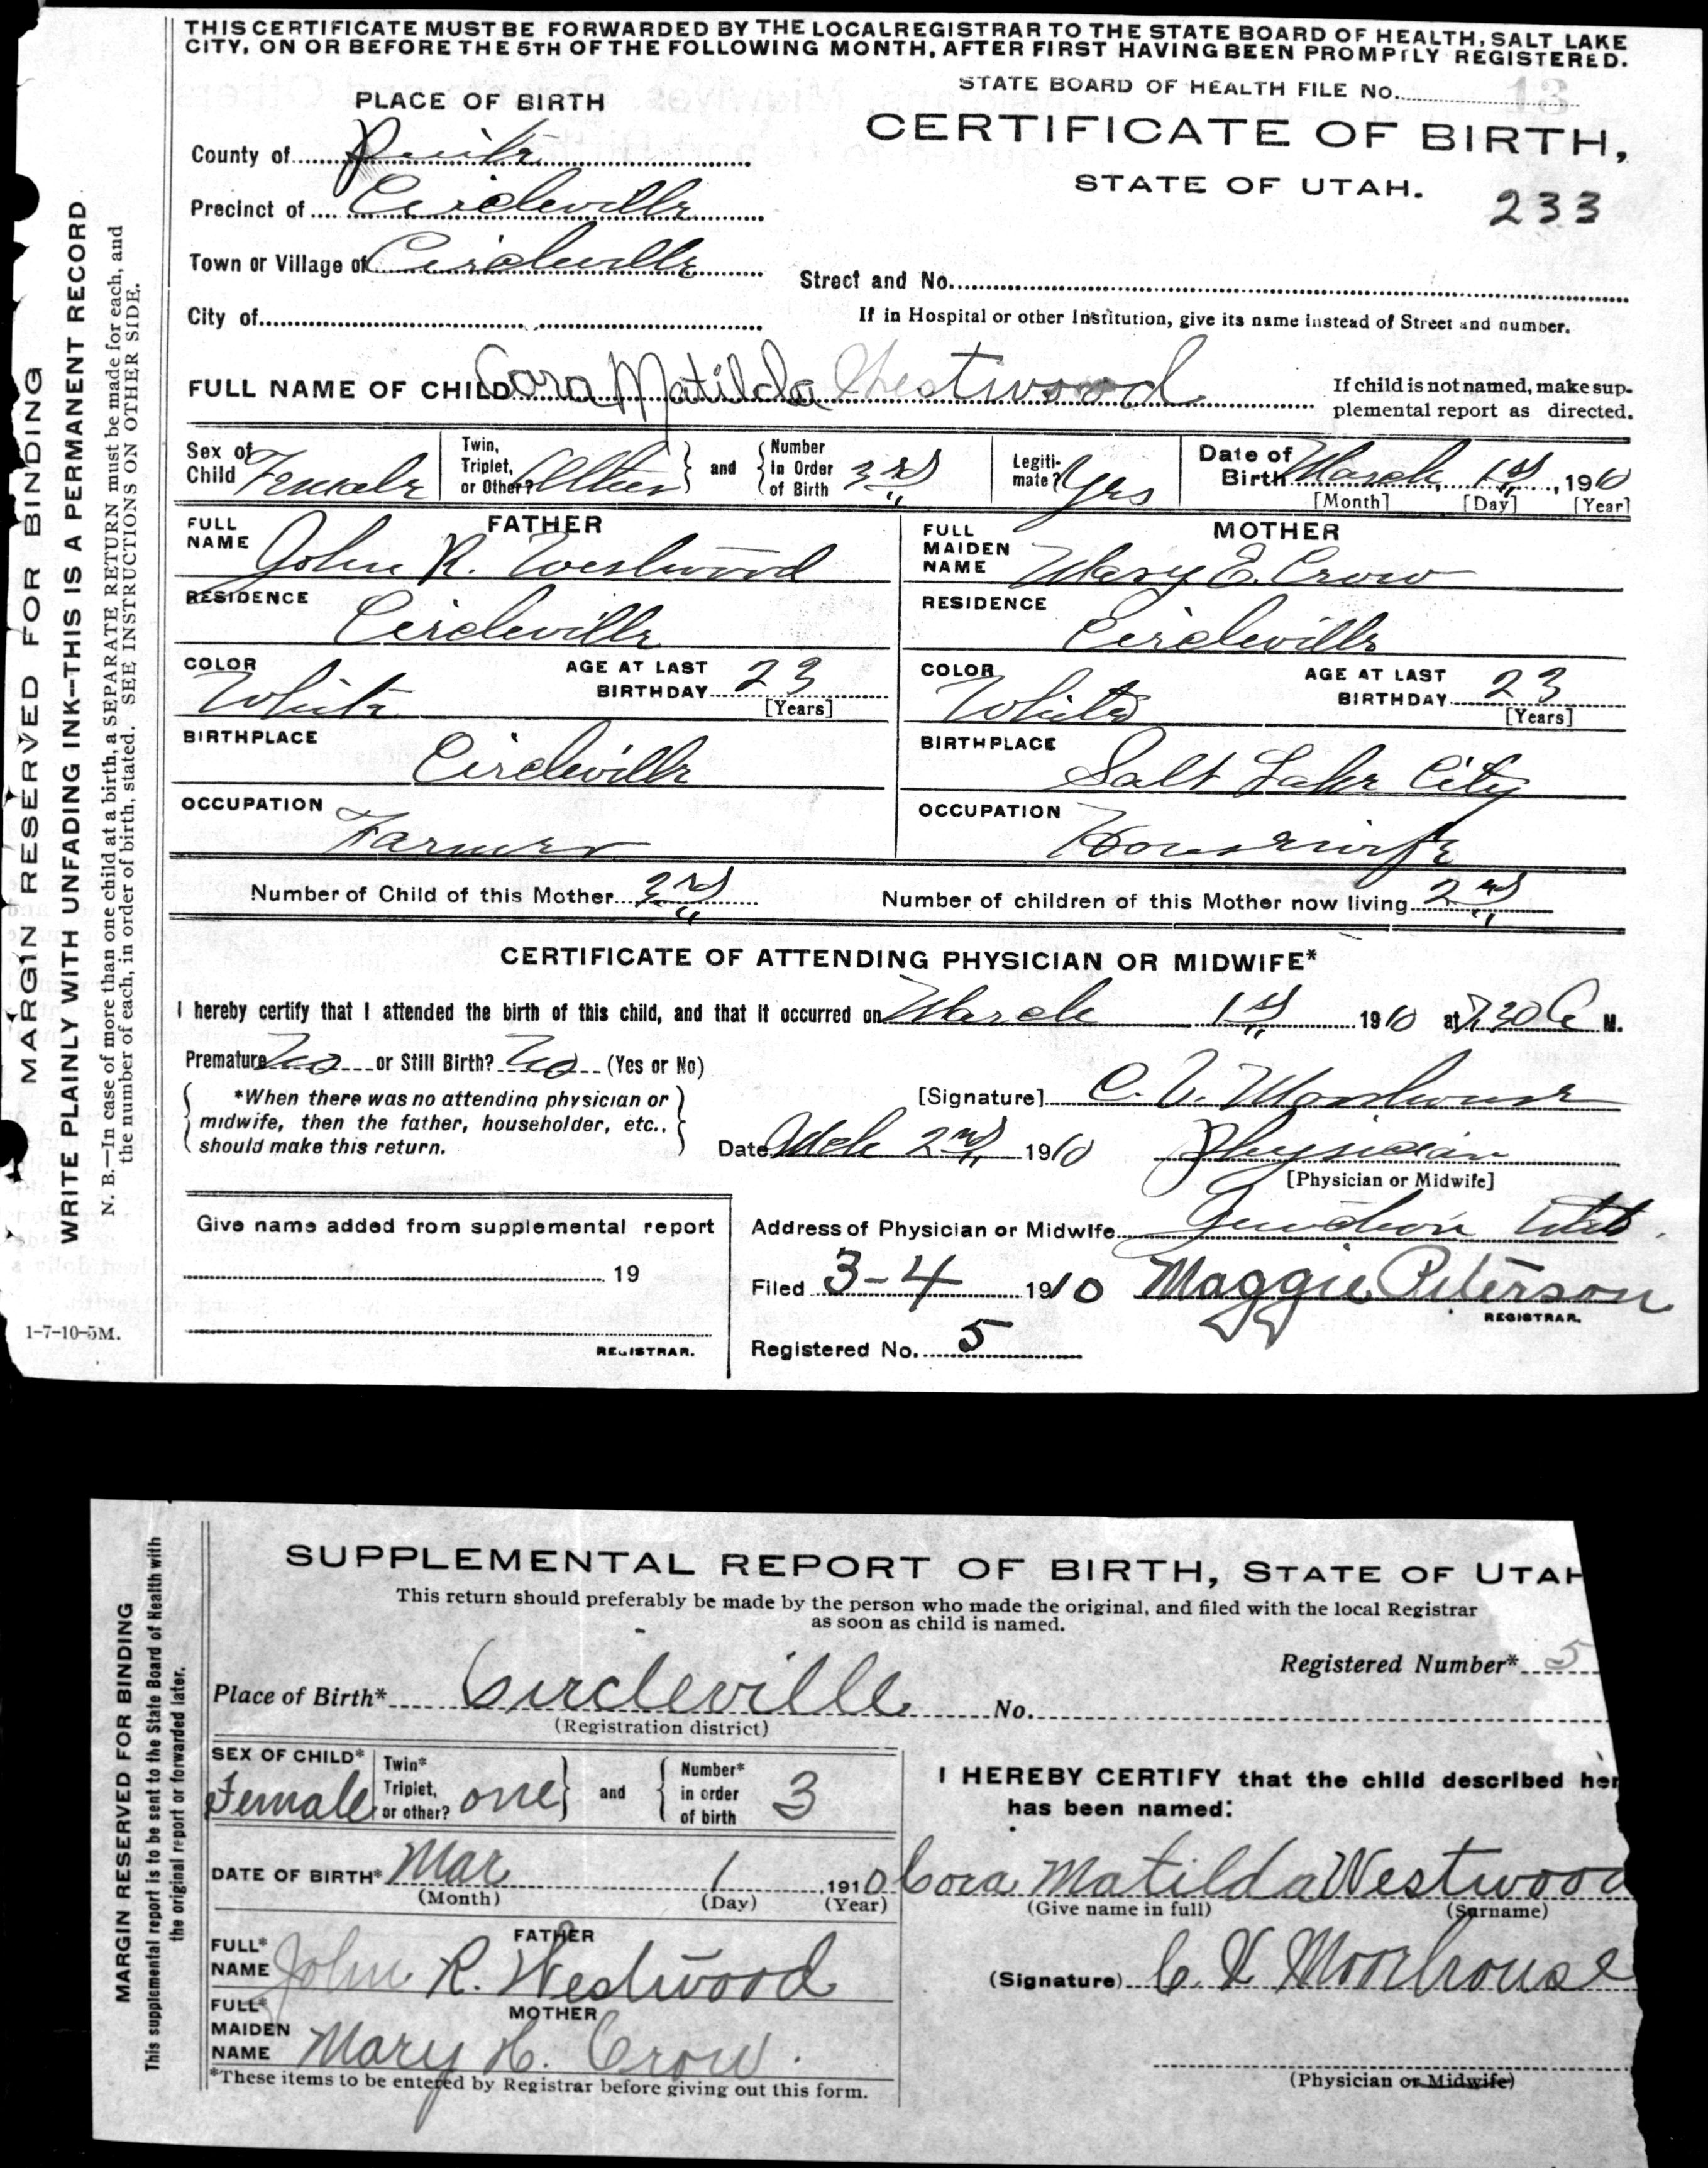 THIS CERTIFICATE MUST BE FORWARDED BY THE LOCAL REGISTRAR TO THE STATE BOARD OF HEALTH, SALT LAKE
CITY, ON OR BEFORE THE 5TH OF THE FOLLOWING MONTH, AFTER FIRST HAVING BEEN PROMPTLY REGISTERED.
STATE BOARD OF HEALTH FILE No. 13
PLACE OF BIRTH
CERTIFICATE OF BIRTH,
STATE OF UTAH.
233
County of
Precinct of Circleville
Town or Village of Circleville
Street and No.
City of
If in Hospital or other Institution, give its name instead of Street and number.
FULL NAME OF CHILD Cora Matilda Westwood
If child is not named, make sup-
plemental report as directed.
Sex of Child Female
Twin, Triplet, or Other? Other and Number In Order of Birth 3rd
Legiti-mate? Yes
Date of Birth March 1st, 1910
[Month] [Day] [Year]
FATHER
FULL NAME John R. Westwood
MOTHER
FULL MAIDEN NAME Mary E. Crow
RESIDENCE Circleville
RESIDENCE Circleville
COLOR White AGE AT LAST BIRTHDAY 23 [Years]
COLOR White AGE AT LAST BIRTHDAY 23 [Years]
BIRTHPLACE Circleville
BIRTHPLACE Salt Lake City
OCCUPATION Farmer
OCCUPATION Housewife
Number of Child of this Mother 3rd
Number of children of this Mother now living 2nd
CERTIFICATE OF ATTENDING PHYSICIAN OR MIDWIFE*
I hereby certify that I attended the birth of this child, and that it occurred on March 1st 1910 at 7.30 A M.
Premature No or Still Birth? No (Yes or No)
*When there was no attending physician or
midwife, then the father, householder, etc.,
should make this return.
[Signature] C. V.
Date Mch 2nd 1910 Physician
[Physician or Midwife]
Address of Physician or Midwife Junction Utah.
Give name added from supplemental report
19
REGISTRAR.
Filed 3-4 1910 Maggie Peterson
REGISTRAR.
Registered No. 5
1-7-10-5M.
MARGIN RESERVED FOR BINDING
WRITE PLAINLY WITH UNFADING INK—THIS IS A PERMANENT RECORD
N. B.—In case of more than one child at a birth, a SEPARATE RETURN must be made for each, and
the number of each, in order of birth, stated. SEE INSTRUCTIONS ON OTHER SIDE.
SUPPLEMENTAL REPORT OF BIRTH, STATE OF UTAH
This return should preferably be made by the person who made the original, and filed with the local Registrar
as soon as child is named.
Registered Number* 5
Place of Birth* Circleville No.
(Registration district)
SEX OF CHILD* Female
Twin* Triplet, or other? one and Number* in order of birth 3
I HEREBY CERTIFY that the child described her
has been named:
DATE OF BIRTH* Mar 1 1910
(Month) (Day) (Year)
Cora Matilda Westwood
(Give name in full) (Surname)
FATHER
FULL* NAME John R. Westwood
(Signature) C V Moorhouse
MOTHER
FULL* MAIDEN NAME Mary H. Crow.
(Physician or Midwife)
*These items to be entered by Registrar before giving out this form.
MARGIN RESERVED FOR BINDING
This supplemental report is to be sent to the State Board of Health with
the original report or forwarded later.